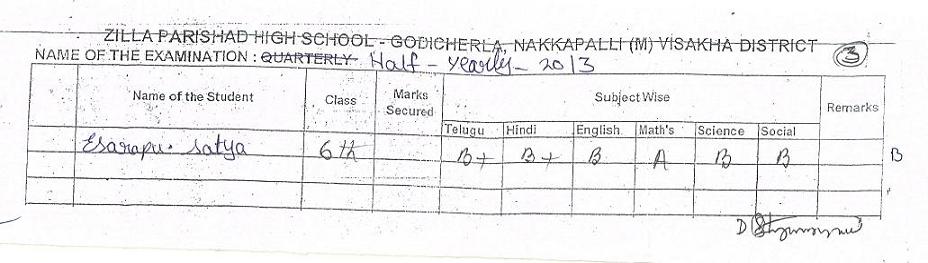 ZILLA PARISHAD HIGH SCHOOL - GODICHERLA, NAKKAPALLI (M) VISAKHA DISTRICT
NAME OF THE EXAMINATION : QUARTERLY Half - yearly - 2013 3
Name of the Student Class Marks Secured Subject Wise Remarks
Telugu Hindi English Math's Science Social
Esarapu. Satya 6th B+ B+ B A B B B